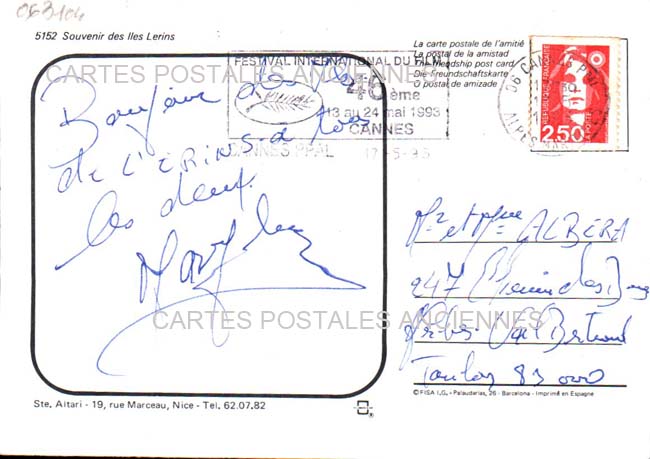 063104
5152 Souvenir des Iles Lerins
La carte postale de l'amitié
La postal de la amistad
The Friendship post card
Die Freundschaftskarte
O postal de amizade
FESTIVAL INTERNATIONAL DU FILM
46ème
13 au 24 mai 1993
CANNES
CANNES PPAL 17-5-93
06 CANNES PPAL
ALPES MAR
REPUBLIQUE FRANCAISE
2,50
CARTES POSTALES ANCIENNES
Bonjour des Iles
de L'ERINS à tous
les deux
Mr et Mme ALBERA
247 Chemin des
Toulon 83000
CARTES POSTALES ANCIENNES
Ste. Aitari - 19, rue Marceau, Nice - Tel. 62.07.82
© FISA I.G. - Palaudarias, 26 - Barcelona - Imprimé en Espagne